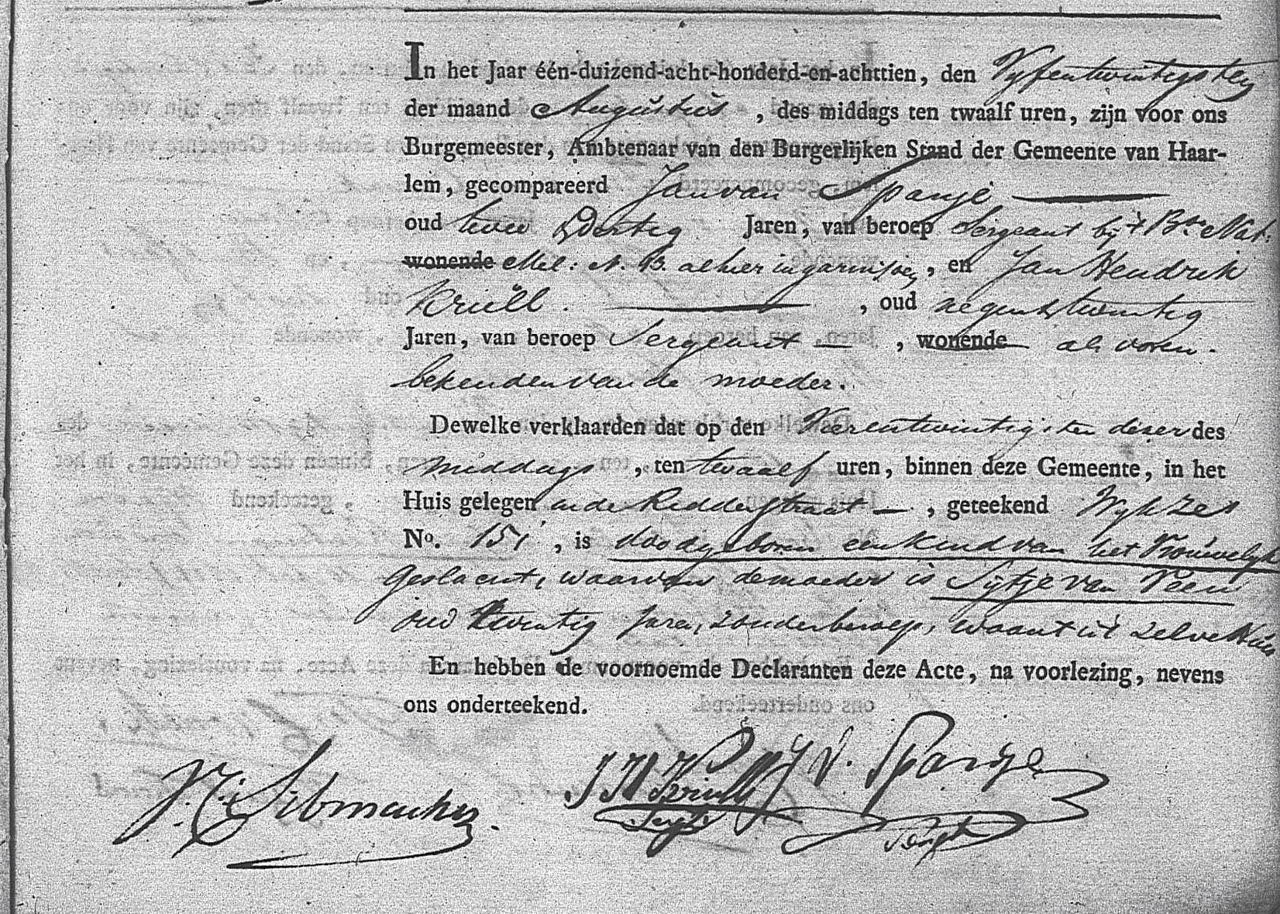 In het Jaar één-duizend-acht-honderd-en-achttien, den Vyfentwintigsten
der maand Augustus, des middags ten twaalf uren, zijn voor ons
Burgemeester, Ambtenaar van den Burgerlijken Stand der Gemeente van Haar-
lem, gecompareerd Jan van Spanje
oud twee & dertig Jaren, van beroep Sergeant bij 't Bn. Nat.
wonende Mil: N. B. alhier in garnisoen, en Jan Hendrik
Kriëll. , oud negen & twintig
Jaren, van beroep Sergeant, wonende als voren.
bekenden van de moeder.
Dewelke verklaarden dat op den Vierentwintigsten dezer des
middags, ten twaalf uren, binnen deze Gemeente, in het
Huis gelegen in de Ridderstraat, geteekend Wyk Zes
No. 151, is doodgeboren een kind van het Vrouwelyk
Geslacht, waarvan de moeder is Sijtje van Veen
oud twintig Jaren, zonder beroep, woont in 't zelve Huis
En hebben de voornoemde Declaranten deze Acte, na voorlezing, nevens
ons onderteekend.
J H Kriell J V. Spanje
Sergt Sergt